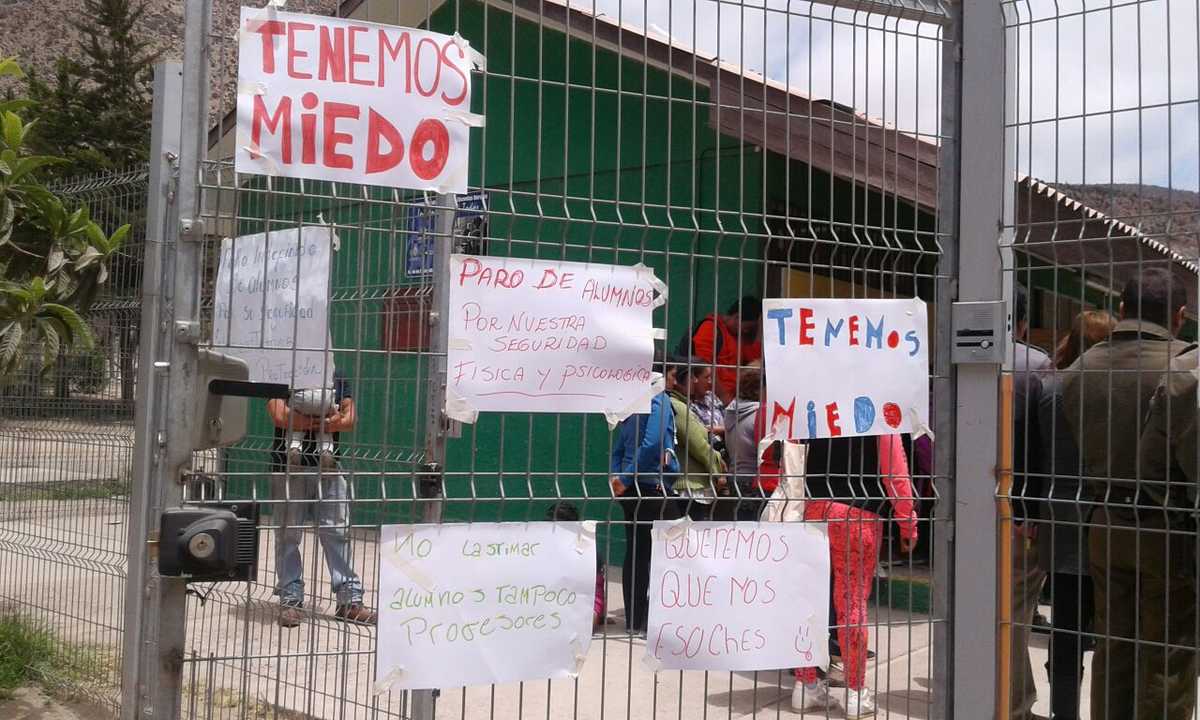 TENEMOS
MIEDO
ALUMNOS
POR SU SEGURIDAD
PARO DE ALUMNOS
POR NUESTRA
SEGURIDAD
FISICA Y PSICOLOGICA
TENEMOS
MIEDO
NO LASTIMAR
ALUMNOS TAMPOCO
PROFESORES
QUEREMOS
QUE NOS
ESCUCHES